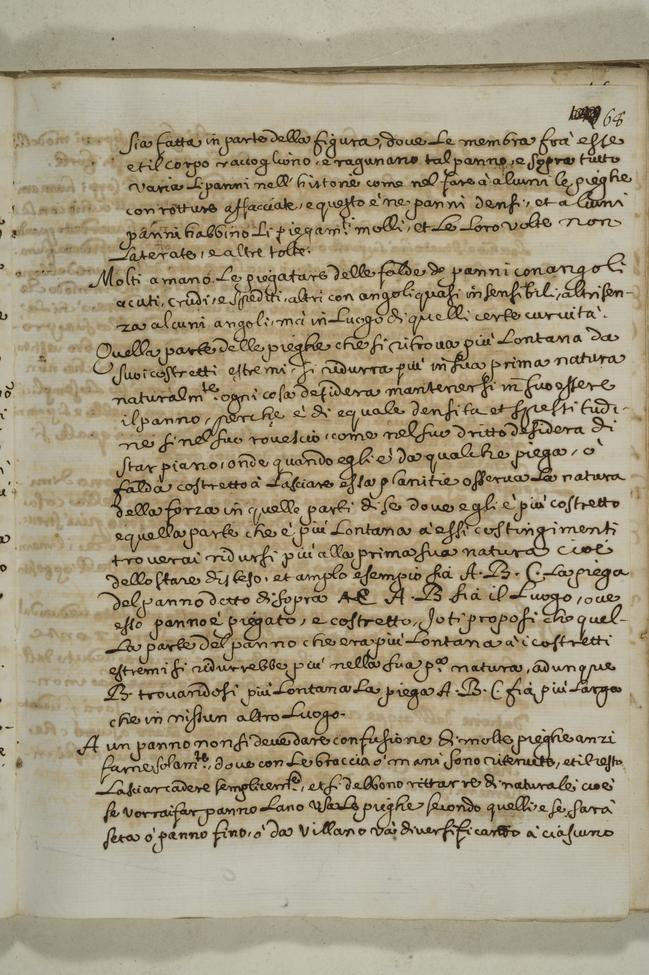 68
sia fatta in parte della figura, dove le membra fra esse
et il corpo raccogliono, e ragunano tal panno, e sopra tutto
varia li panni nell' historie come nel fare à alcuni le pieghe
con rotture affacciate, e questo è ne panni densi, et alcuni
panni habbino li piegam.ti molli, et le loro volte non
laterate, e altre tolte.
Molti amano le piegature delle falde de panni con angoli
acuti, crudi, e spediti, altri con angoli quasi insensibili, altri sen-
za alcuni angoli, mà in luogo di quelli certe curvità.
Quella parte delle pieghe che si ritrova più lontana da
suoi costretti estremi si ridurrà più in sua prima natura
naturalm.te ogni cosa desidera mantenersi in suo essere
il panno, perche è di equale densita et spessitudi-
ne si nel suo rovescio, come nel suo dritto desidera di
star piano, onde quando egli è da qualche piega, ò
falda costretto à lasciare essa planitie osserva la natura
della forza in quelle parti di se dove egli è più costretto
e quella parte che è più lontana à essi costringimenti
troverai ridursi più alla prima sua natura cioè
dello stare disteso, et amplo esempio sia A. B. C. la piega
del panno detto di sopra A. B sia il luogo, ove
esso panno è piegato, e costretto, io ti proposi che quel-
la parte del panno che era più lontana à i costretti
estremi si ridurrebbe più nella sua p.a natura, adunque
B. trovandosi più lontana la piega A. B. C. fia più larga
che in nissun altro luogo.
A un panno non si deve dare confusione di molte pieghe anzi
farne solam.te, dove con le braccia ò mani sono ritenute, et il resto
lasciar cadere semplicem.te, et si debbono rittarre di naturale, cioè
se vorrai far panno lano usa le pieghe secondo quelli, e se sarà
seta ò panno fino, ò da villano và diversificando à ciascuno